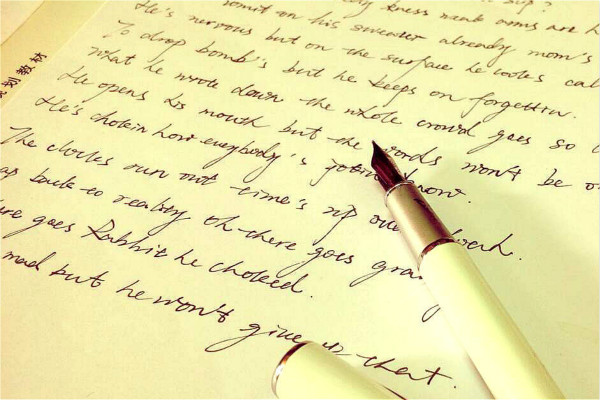 knees weak arms are h
vomit on his sweater already mom's
He's nervous but on the surface he lookes cal
To drop bomb's but he keeps on forgettin.
what he wrote down the whole crowd goes so
He opens his mouth but the words won't be o
He's chokin how everybody's now.
The clocks run out time's up
ap back to reality oh-there goes gra
ere goes Rabbit he choked.
mad but he won't give up that.
划教材